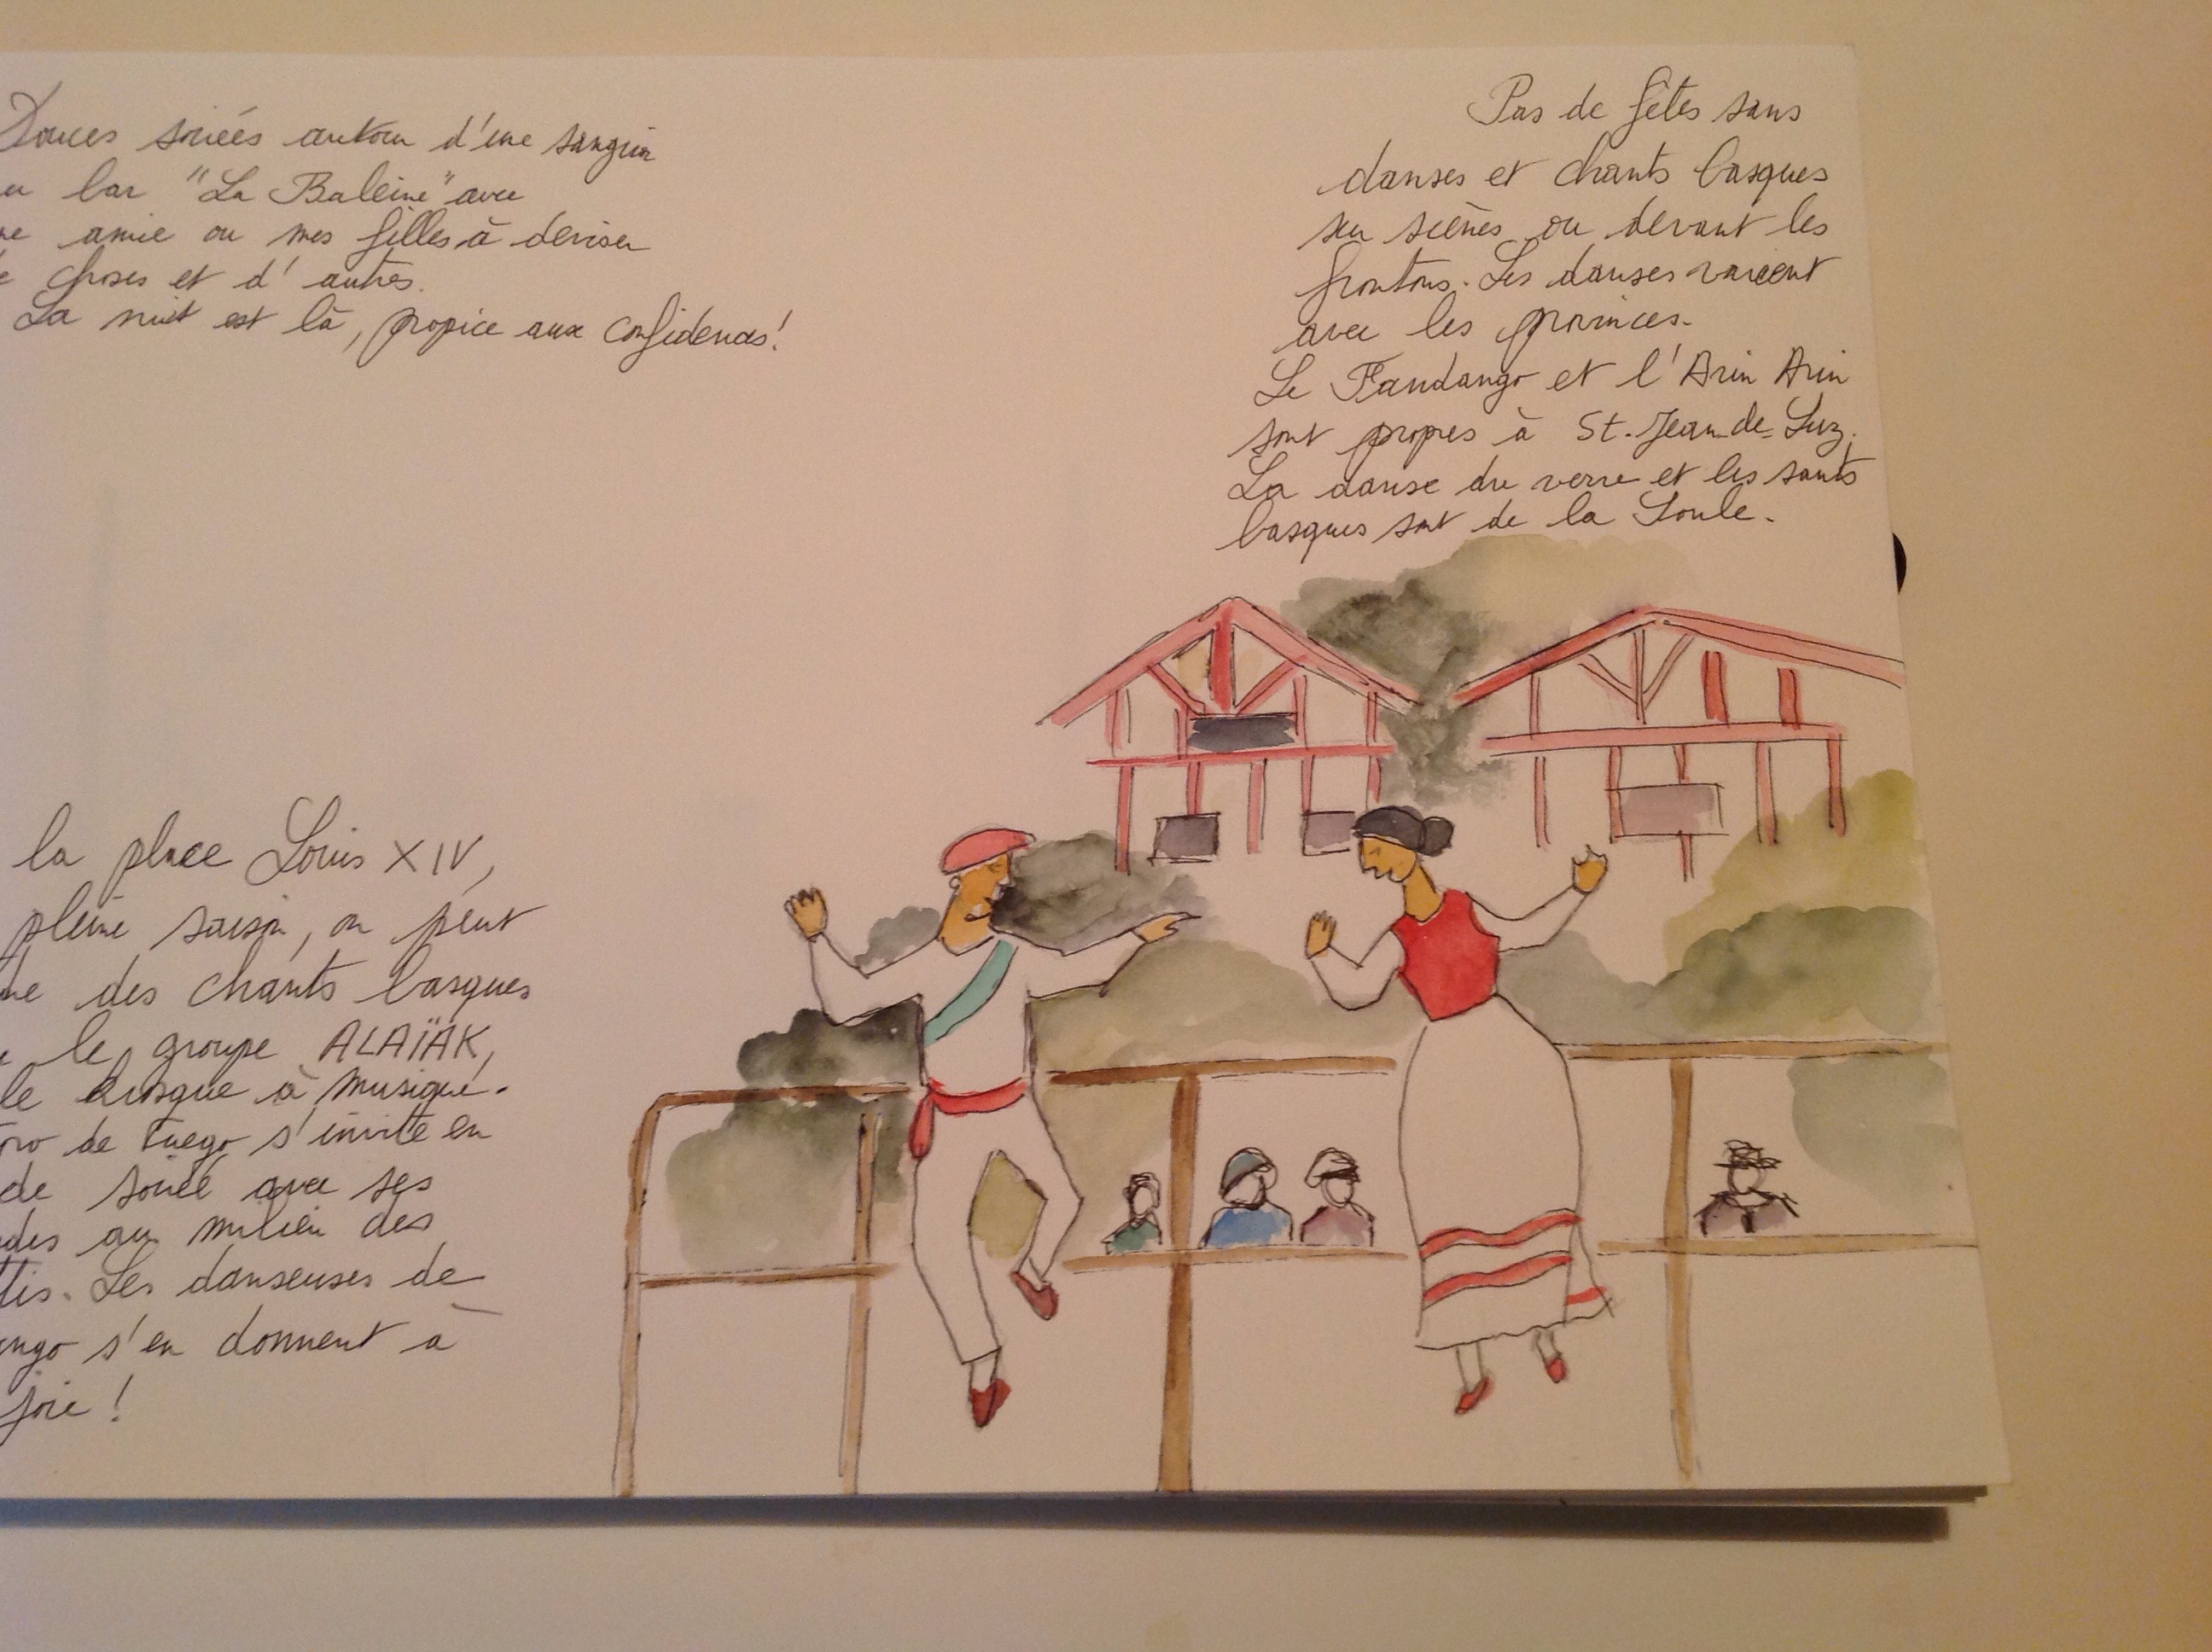 Douces soirées autour d'une sangria
bar "La Baleine" avec
amie ou mes filles à deviser
choses et d'autres.
La nuit est là, propice aux confidences!
Pas de fêtes sans
danses et chants basques
sur scènes ou devant les
frontons. Les danses varient
avec les provinces.
Le Fandango et l'Arin Arin
sont propres à St.Jean-de-Luz.
La danse du verre et les sauts
basques sont de la Soule.
la place Louis XIV,
pleine saison, on peut
des chants basques
le groupe ALAÏAK,
le kiosque à musique.
toro de fuego s'invite en
de soirée avec ses
au milieu des
Les danseuses de
s'en donnent à
joie!